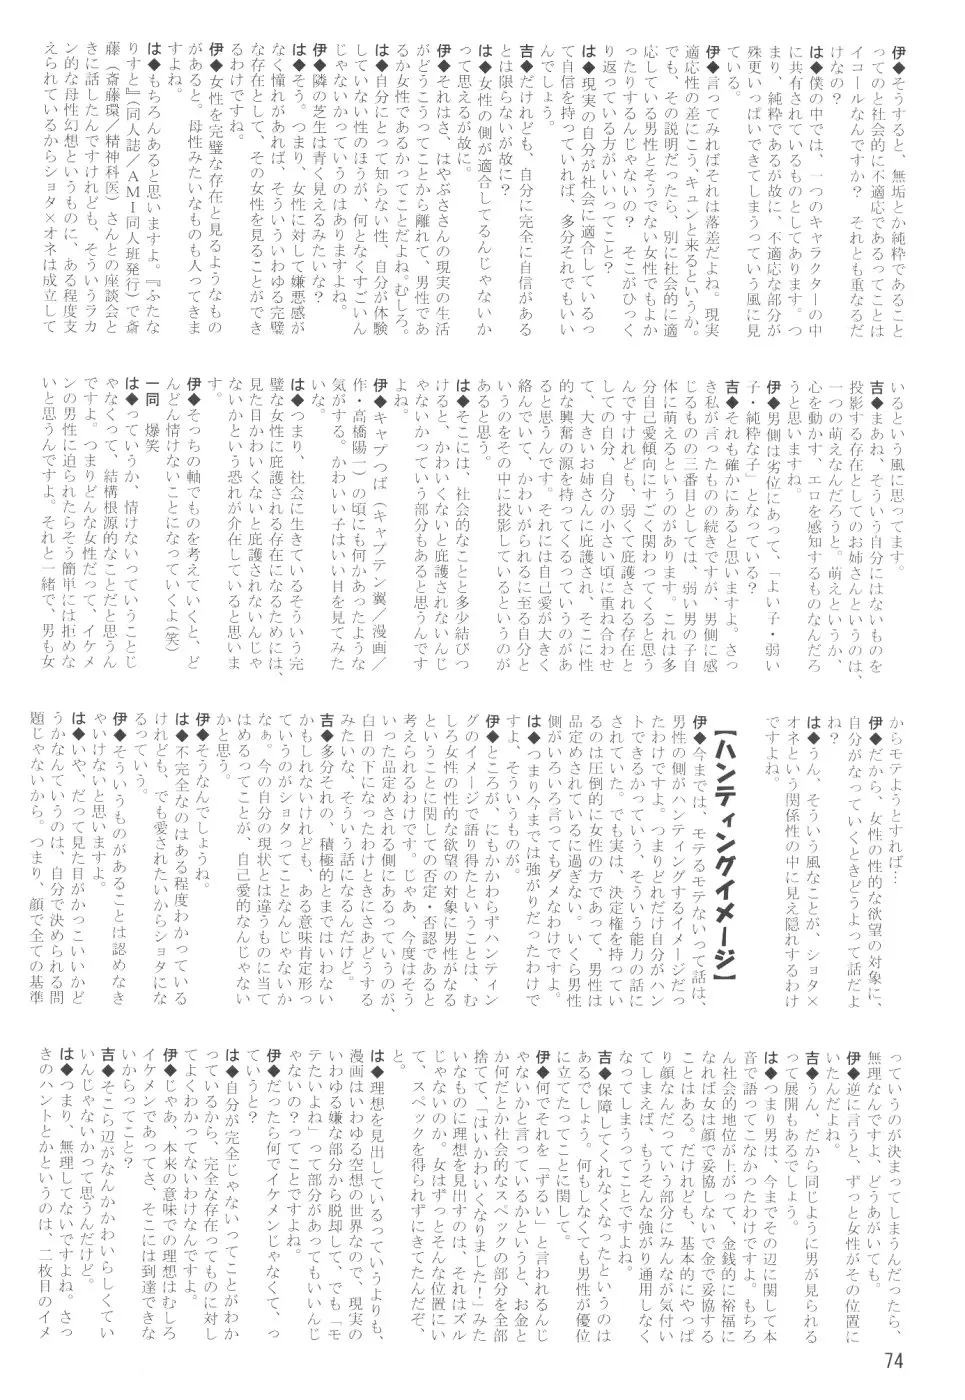 伊◆そうすると、無垢とか純粋であること
ってのと社会的に不適応であるってことは
イコールなんですか？　それとも重なるだ
けなの？
は◆僕の中では、一つのキャラクターの中
に共有されているものとしてあります。つ
まり、純粋であるが故に、不適応な部分が
殊更いっぱいできてしまうっていう風に見
ている。
伊◆言ってみればそれは落差だよね。現実
適応性の差にこう、キュンと来るというか。
でも、その説明だったら、別に社会的に適
応している男性とそうでない女性でもよか
ったりするんじゃないの？　そこがひっく
り返っている方がいいってこと？
は◆現実の自分が社会に適合しているっ
て自信を持っていれば、多分それでもいい
んでしょう。
吉◆だけれども、自分に完全に自信がある
とは限らないが故に？
は◆女性の側が適合してるんじゃないか
って思えるが故に。
伊◆それはさ、はやぶささんの現実の生活
がどうこうってことから離れて、男性であ
るか女性であるかってことだよね。むしろ。
は◆自分にとって知らない性、自分が体験
していない性のほうが、何となくすごいん
じゃないかっていうのはありますよね。
伊◆隣の芝生は青く見えるみたいな？
は◆そう。つまり、女性に対して嫌悪感が
なく憧れがあれば、そういういわゆる完璧
な存在として、その女性を見ることができ
るわけですね。
伊◆女性を完璧な存在と見るようなもの
があると。母性みたいなものも入ってきま
すよね。
は◆もちろんあると思いますよ。『ふたな
りすと』（同人誌／ＡＭＩ同人班発行）で斎
藤（斎藤環／精神科医）さんとの座談会と
きに話したんですけれども、そういうラカ
ン的な母性幻想というものに、ある程度支
えられているからショタ×オネは成立して
いるという風に思ってます。
吉◆まあね、そういう自分にはないものを
投影する存在としてのお姉さんというのは、
一つの萌えなんだろうと。萌えというか、
心を動かす、エロを感知するものなんだろ
うと思いますね。
伊◆男側は劣位にあって、「よい子・弱い
子・純粋な子」となっている？
吉◆それも確かにあると思いますよ。さっ
き私が言ったものの続きですが、男側に感
じるものの三番目としては、弱い男の子自
体に萌えるというのがあります。これは多
分自己愛傾向にすごく関わってくると思う
んですけれども、弱くて庇護される存在と
しての自分、自分の小さい頃に重ね合わせ
て、大きいお姉さんに庇護され、そこに性
的な興奮の源を持ってくるっていうのがあ
ると思うんです。それには自己愛が大きく
絡んでいて、かわいがられるに至る自分と
いうのをその中に投影しているというのが
あると思う。
は◆そこには、社会的なことと多少結びつ
けると、かわいくないと庇護されないんじ
ゃないかっていう部分もあると思うんです
よね。
伊◆キャプつば（キャプテン翼／漫画／
作・高橋陽一）の頃にも何かあったような
気がする。かわいい子はいい目を見てみた
いな。
は◆つまり、社会に生きているそういう完
璧な女性に庇護される存在になるためには、
見た目かわいくないと庇護されないんじゃ
ないかという恐れが介在していると思いま
す。
伊◆そっちの軸でものを考えていくと、ど
んどん情けないことになっていくよ（笑）
一同　爆笑
は◆っていうか、情けないっていうことじ
ゃなくって、結構根源的なことだと思うん
ですよ。つまりどんな女性だって、イケメ
ンの男性に迫られたらそう簡単には拒めな
いと思うんですよ。それと一緒で、男も女
からモテようとすれば…
伊◆だから、女性の性的な欲望の対象に、
自分がなっていくときどうよって話だよ
ね？
は◆うん、そういう風なことが、ショタ×
オネという関係性の中に見え隠れするわけ
ですよね。
【ハンティングイメージ】
伊◆今までは、モテるモテないって話は、
男性の側がハンティングするイメージだっ
たわけですよ。つまりどれだけ自分がハン
トできるかっていう、そういう能力の話に
されていた。でも実は、決定権を持ってい
るのは圧倒的に女性の方であって、男性は
品定めされているに過ぎない。いくら男性
側がいろいろ言ってもダメなわけですよ。
は◆つまり今までは強がりだったわけで
すよ、そういうものが。
伊◆ところが、にもかかわらずハンティン
グのイメージで語り得たということは、む
しろ女性の性的な欲望の対象に男性がなる
ということに関しての否定・否認であると
考えられるわけです。じゃあ、今度はそう
いった品定めされる側にあるっていうのが、
白日の下になったわけときにさあどうする
みたいな、そういう話になるんだけど。
吉◆多分それの、積極的とまではいわない
かもしれないけれども、ある意味肯定形っ
ていうのがショタってことなんじゃないか
なぁ。今の自分の現状とは違うものに当て
はめるってことが、自己愛的なんじゃない
かと思う。
伊◆そうなんでしょうね。
は◆不完全なのはある程度わかっている
けれども、でも愛されたいからショタにな
るっていう。
伊◆そういうものがあることは認めなき
ゃいけないと思いますよ。
は◆いや、だって見た目がかっこいいかど
うかなんていうのは、自分で決められる問
題じゃないから。つまり、顔で全ての基準
っていうのが決まってしまうんだったら、
無理なんですよ、どうあがいても。
伊◆逆に言うと、ずっと女性がその位置に
いたんだよね。
吉◆うん、だから同じように男が見られる
って展開もあるでしょう。
は◆つまり男は、今までその辺に関して本
音で語ってこなかったわけですよ。もちろ
ん社会的地位が上がって、金銭的に裕福に
なれば女は顔で妥協しないで金で妥協する
ことはある。だけれども、基本的にやっぱ
り顔なんだっていう部分にみんなが気付い
てしまえば、もうそんな強がり通用しなく
なってしまうってことですよね。
吉◆保障してくれなくなったというのは
あるでしょう。何もしなくても男性が優位
に立てたってことに関して。
伊◆何でそれを「ずるい」と言われるんじ
ゃないかと言っているかというと、お金と
か何だとか社会的なスペックの部分を全部
捨てて、「はいかわいくなりました！」みた
いなものに理想を見出すのは、それはズル
じゃないのか。女はずっとそんな位置にい
て、スペックを得られずにきてたんだぞ、
と。
は◆理想を見出しているっていうよりも、
漫画はいわゆる空想の世界なので、現実の
いわゆる嫌な部分から脱却して、でも「モ
テたいよね」って部分があってもいいんじ
ゃないの？ってことですよね。
伊◆だったら何でイケメンじゃなくて、っ
ていうと？
は◆自分が完全じゃないってことがわか
っているから、完全な存在ってものに対し
てよくわかってないわけなんですよ。
伊◆じゃあ、本来の意味での理想はむしろ
イケメンであってさ、そこには到達できな
いからってこと？
吉◆そこら辺がなんかかわいらしくてい
いんじゃないかって思うんだけど。
は◆つまり、無理してないですよね。さっ
きのハントとかというのは、二枚目のイメ
74